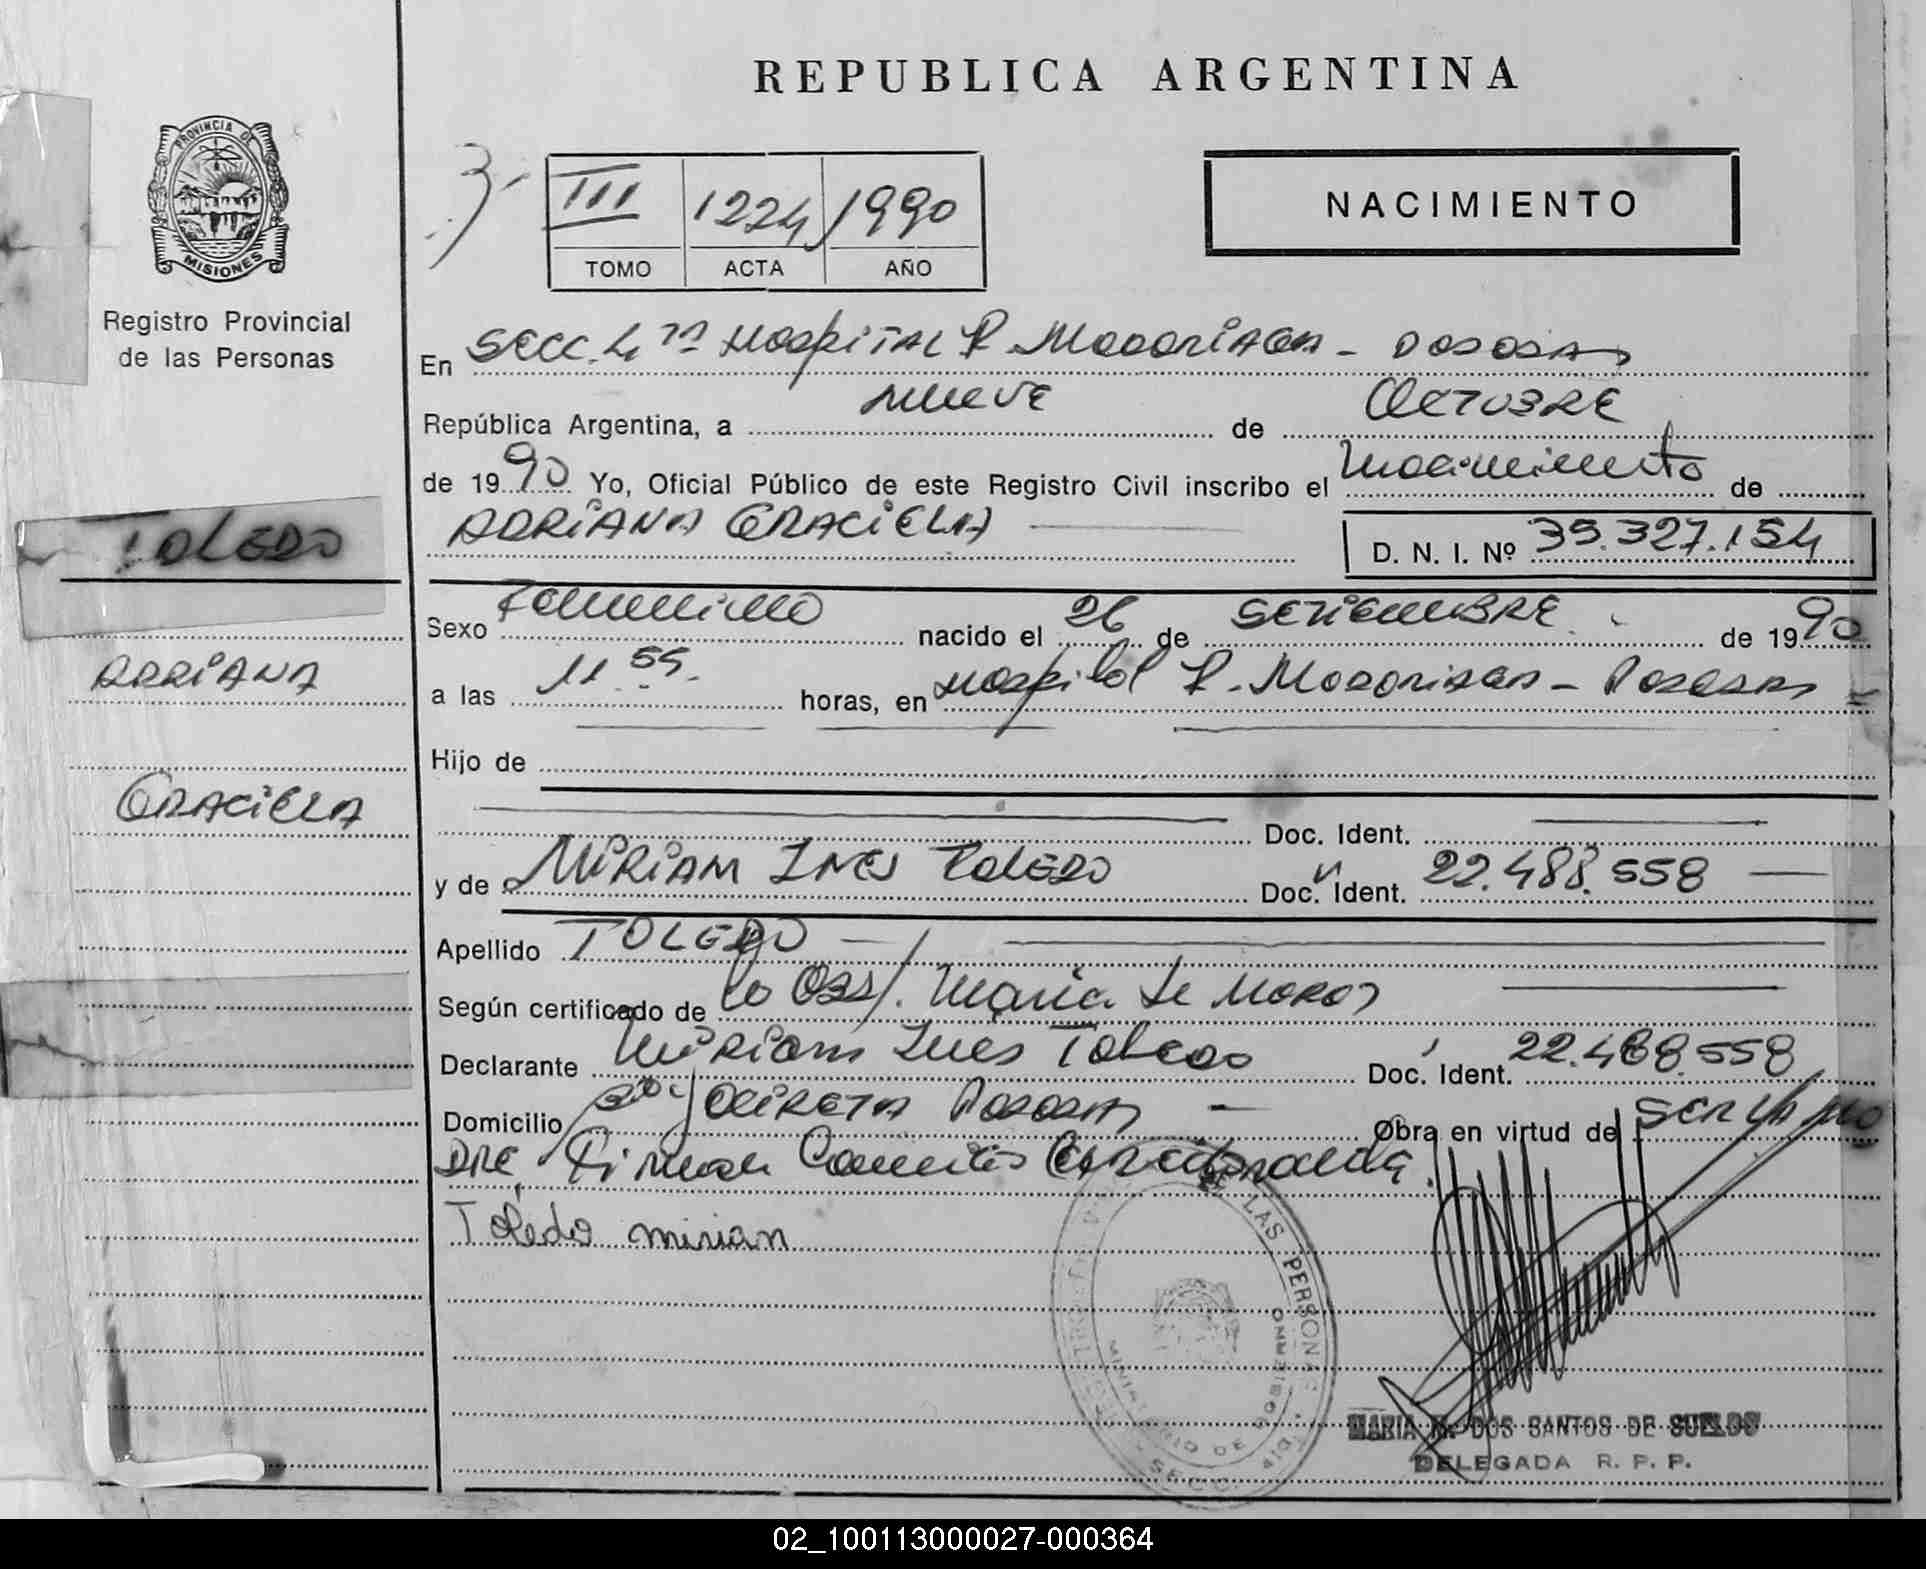 REPUBLICA ARGENTINA
PROVINCIA DE
MISIONES
Registro Provincial
de las Personas
3
III 1224 1990
TOMO ACTA AÑO
NACIMIENTO
En Secc. 4ta Hospital R. Madariaga - Posadas
República Argentina, a nueve de Octubre
de 1990 Yo, Oficial Público de este Registro Civil inscribo el nacimiento de
ADRIANA GRACIELA
D. N. I. Nº 35.327.154
TOLEDO
ADRIANA
GRACIELA
Sexo Femenino nacido el 26 de SETIEMBRE de 1990
a las 11 55 horas, en Hospital R. Madariaga - Posadas
Hijo de
Doc. Ident.
y de MIRIAM INES TOLEDO Doc. Ident. 22.488.558
Apellido TOLEDO
Según certificado de la Obst. Maria de
Declarante Miriam Ines Toledo Doc. Ident. 22.488.558
Domicilio Posadas Obra en virtud de
Firman
Toledo Mirian
DE LAS PERSONAS
MINISTERIO DE GOBIERNO
SECC.
MARIA M. DOS SANTOS DE SUELDO
DELEGADA R. P. P.
02_100113000027-000364